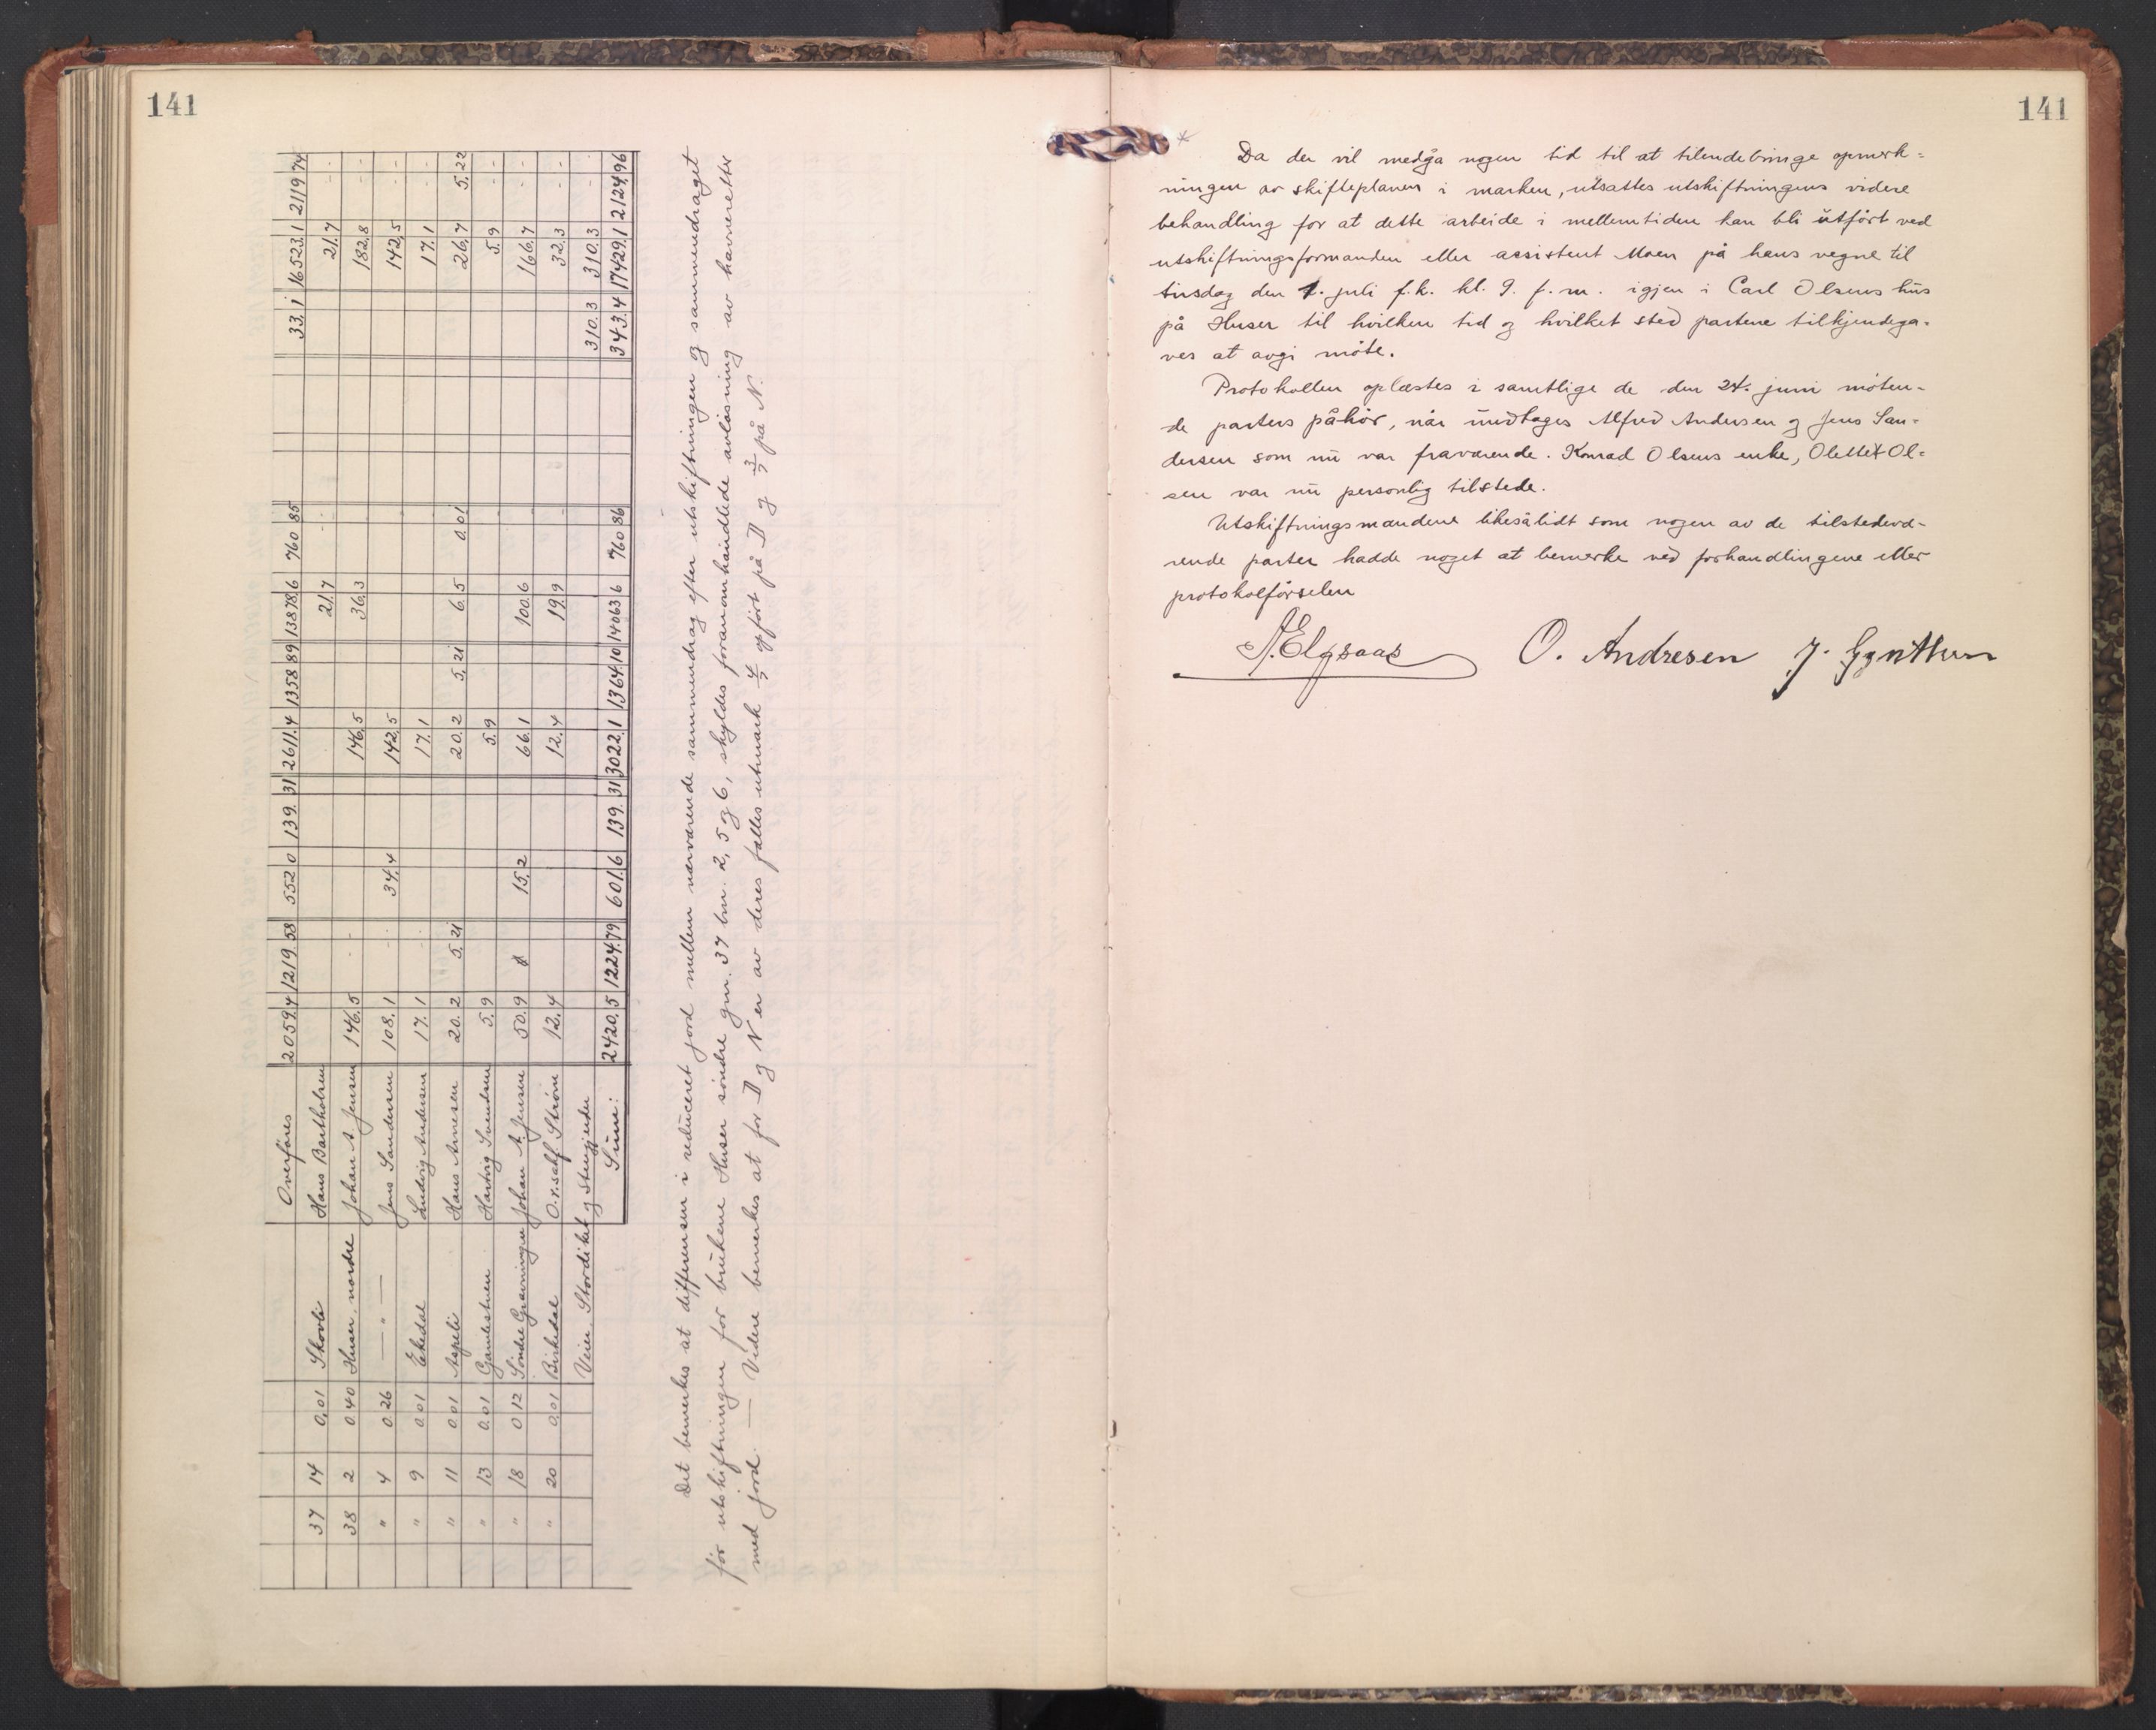 141
Overføres 2059,4 1219 58 552 0 139. 31 2611.4 1358 89 13878,6 760 85 33,1 16523,1 2119 74
37 14 0,01 Skovli Hans Bartholsen 21,7 21,7
38 2 0 40 Huser nordre Johan A. Jensen 146,5 146,5 36,3 182,8
" 4 0.26 — " — Jens Sandersen 108,1 34,4 142,5 142,5
" 9 0 01 Ekedal Ludvig Andersen 17,1 17,1 17,1
" 11 0 01 Aspeli Hans Arnesen 20.2 5,21 20.2 5,21 6,5 0,01 26,7 5,22
" 13 0.01 Gamlestuen Hartvig Svendsen 5,9 5,9 5,9
" 18 0 12 Søndre Grønningen Johan A. Jensen 50.9 15,2 66,1 100.6 166,7
" 20 0,01 Birkedal O. r. sakf. Strøm 12,4 12,4 19,9 32,3
Veier, Stordiket og Stengjerder 310.3 310.3
Sum: 2420,5 1224.79 601,6 139. 31 3022,1 1364.10 14063 6 760 86 343.4 17429,1 2124.96
Det bemerkes at differensen i redüceret jord mellem nærværende sammendrag efter utskiftningen og sammendraget
før utskiftningen for brükene Huser søndre gnr. 37 bnr. 2, 5 og 6, skyldes foranomhandlede avløsning av havneretter
med jord. — Videre bemerkes at for D og N er av deres fælles utmark 4/7 opført på D og 3/7 på N.
141
Da der vil medgå nogen tid til at tilendebringe opmerk-
ningen av skifteplanen i marken, utsættes utskiftningens videre
behandling for at dette arbeide i mellemtiden kan bli utført ved
utskiftningsformanden eller assistent Moen på hans vegne til
tirsdag den 1. juli f.k. kl. 9. f. m. igjen i Carl Olsens hüs
på Huser til hvilken tid og hvilket sted partene tilkjendega-
ves at avgi møte.
Protokollen oplæstes i samtlige de den 24. juni møten-
de parters påhør, når undtages Alfred Andersen og Jens San-
dersen som nü var fraværende. Konrad Olsens enke, Olette Ol-
sen var nü personlig tilstede.
Utskiftningsmændene likesålidt som nogen av de tilstedevæ-
rende parter hadde noget at bemerke ved forhandlingene eller
protokolførselen
A. Elgsaas O. Andresen J.